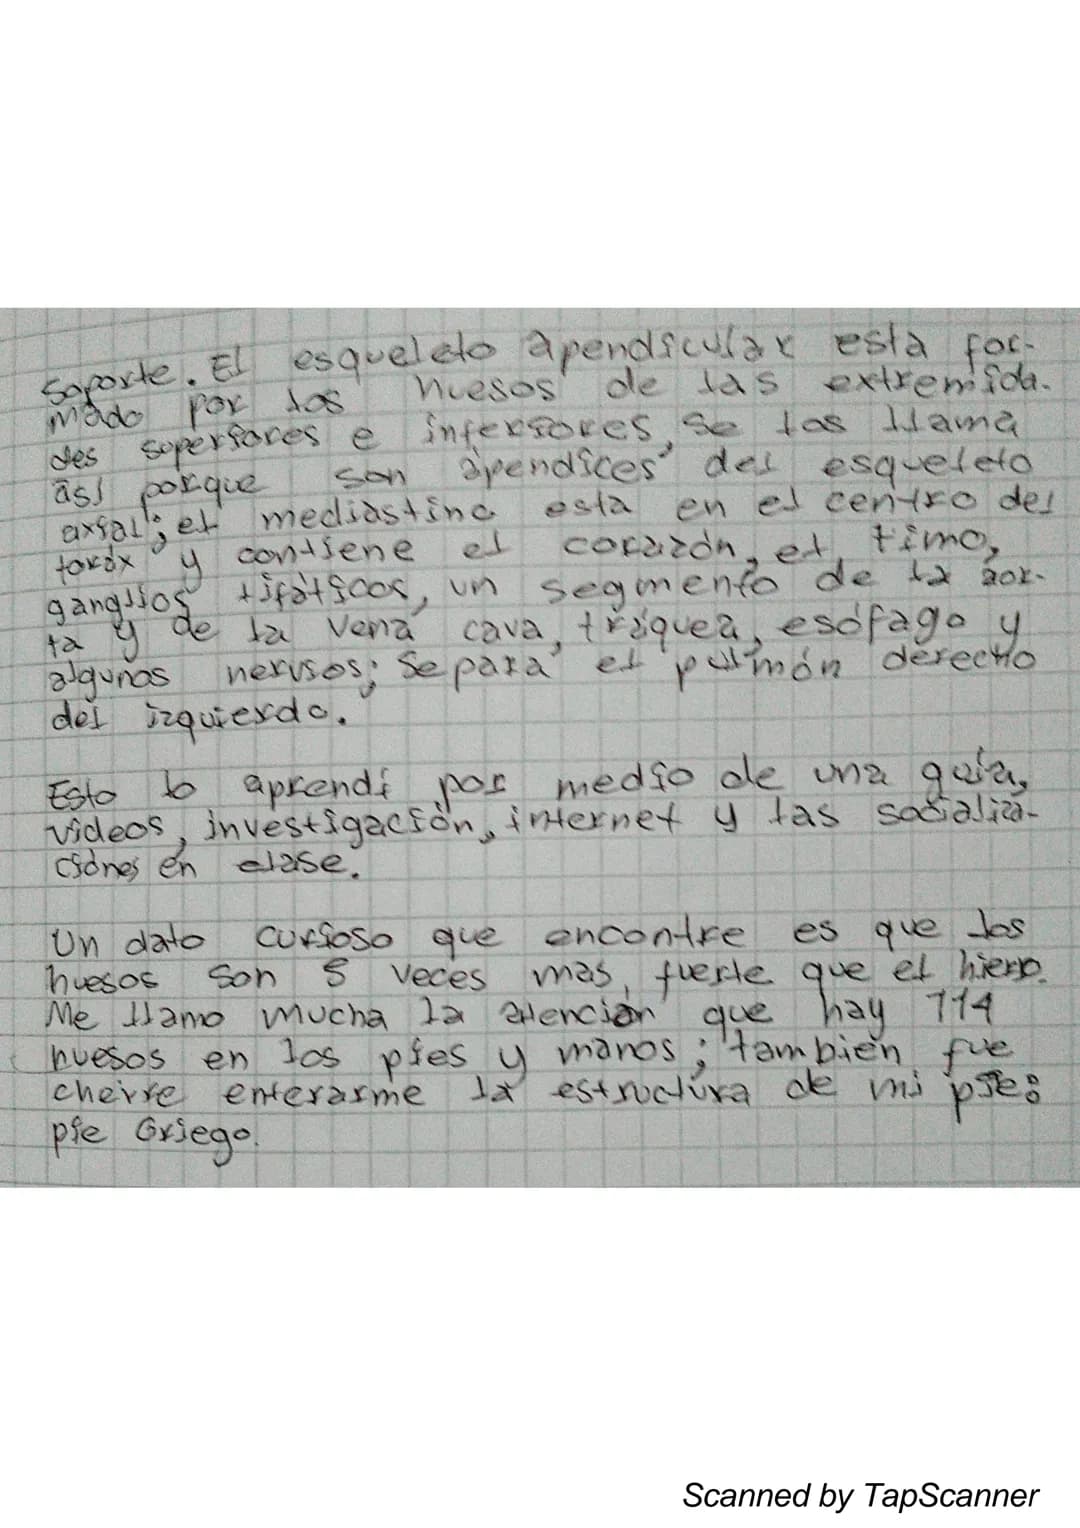 Soporte. El esqueleto apendicular esta for-
mado por los huesos de las extremida-
des superiores e inferiores, se las llama
así porque son apendices del esqueleto
axial; el mediastino esta en el centro del
toráx y contiene el corazón, el timo,
ganglios lifáticos, un segmento de la aor-
ta y de la vena cava, tráquea, esófago y
algunos nervios; Separa el pulmón derecho
del izquierdo.
Esto lo aprendí por medio de una guía,
videos, investigación, internet y las socializa-
ciónes en clase.
Un dato curioso que encontre es que los
huesos son 5 veces mas fuerte que el hierro.
Me llamo mucha la atencion que hay 114
huesos en los pies y manos; también fue
chevre enterarme la estructura de mi pie:
pie Griego.
Scanned by TapScanner